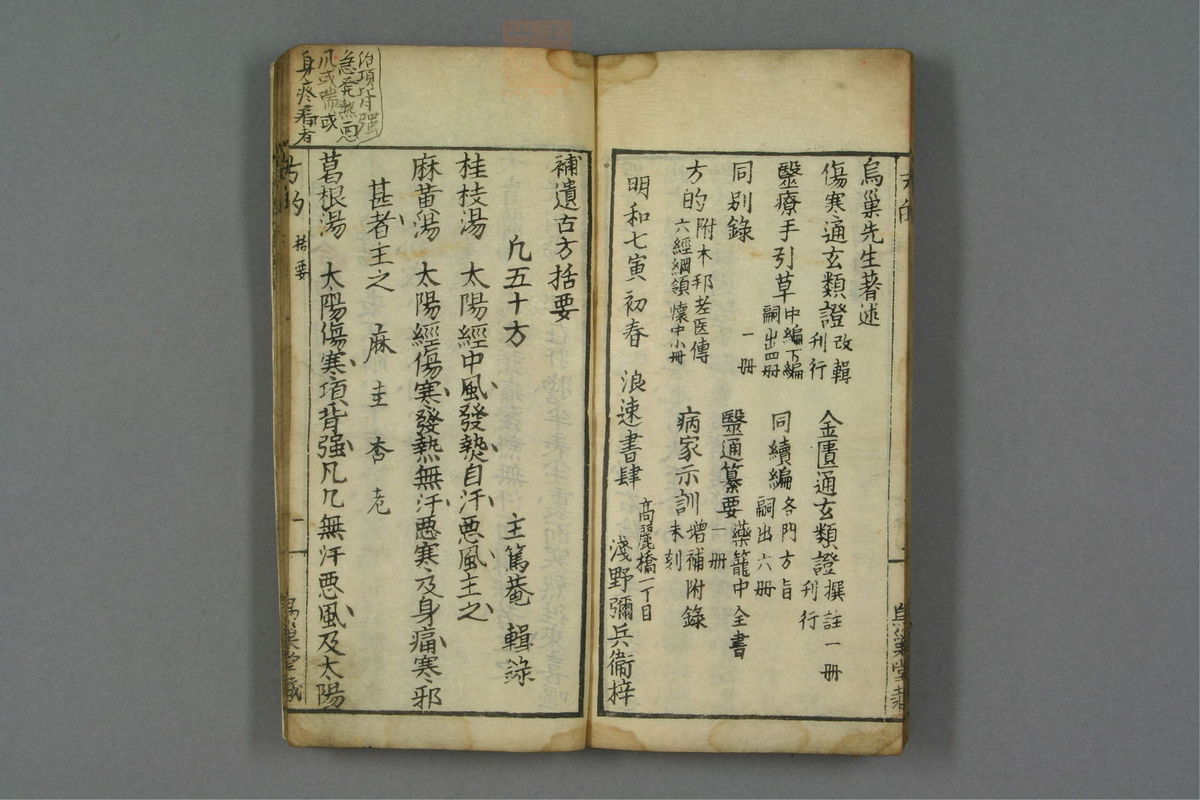 烏巢先生著述
傷寒通玄類證 改輯刊行
金匱通玄類證 撰註一册刊行
醫療手引草 中編下編嗣出四册
同續編 各門方旨嗣出六册
同别錄 一册
醫通纂要 藥籠中全書一册
方的 附本邦老医傳六經綱領懷中小册
病家示訓 增補附錄未刻
明和七寅初春 浪速書肆 高麗橋一丁目
淺野彌兵衞梓
治項背强
急發熱悪
凡或喘或
身疼痛者
補遺古方括要
凢五十方 主篤菴 輯錄
桂枝湯 太陽經中風發熱自汗悪風主之
麻黃湯 太陽經傷寒發熱無汗悪寒及身痛寒邪
甚者主之 麻 圭 杏 老
葛根湯 太陽傷寒項背强几几無汗悪風及太陽
方的 括要 一
烏巢堂藏